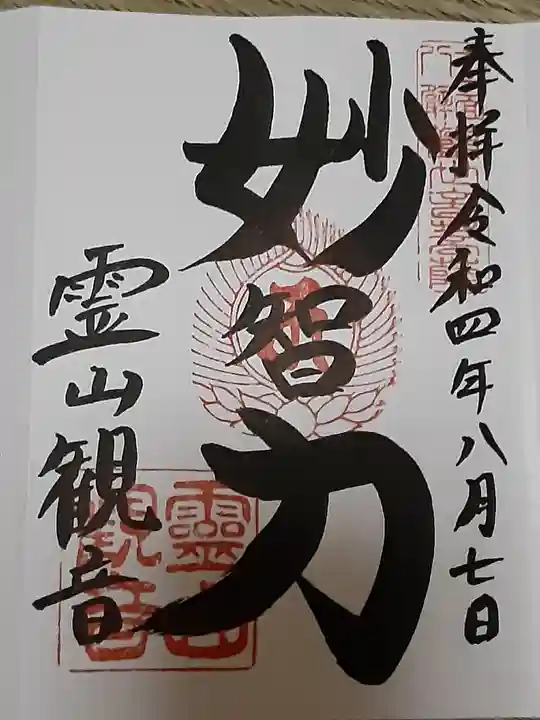 奉拝令和四年八月七日
妙智力
霊山観音
靈山
觀音